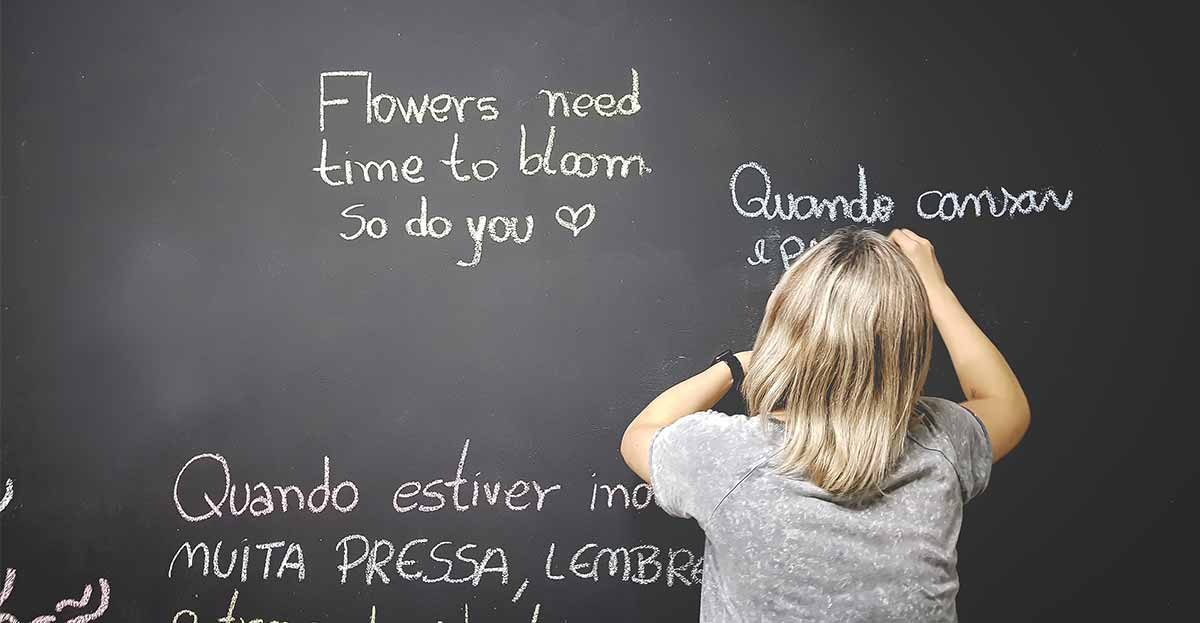 Flowers need
time to bloom
So do you ♡
Quando cansar
e
Quando estiver
MUITA PRESSA,